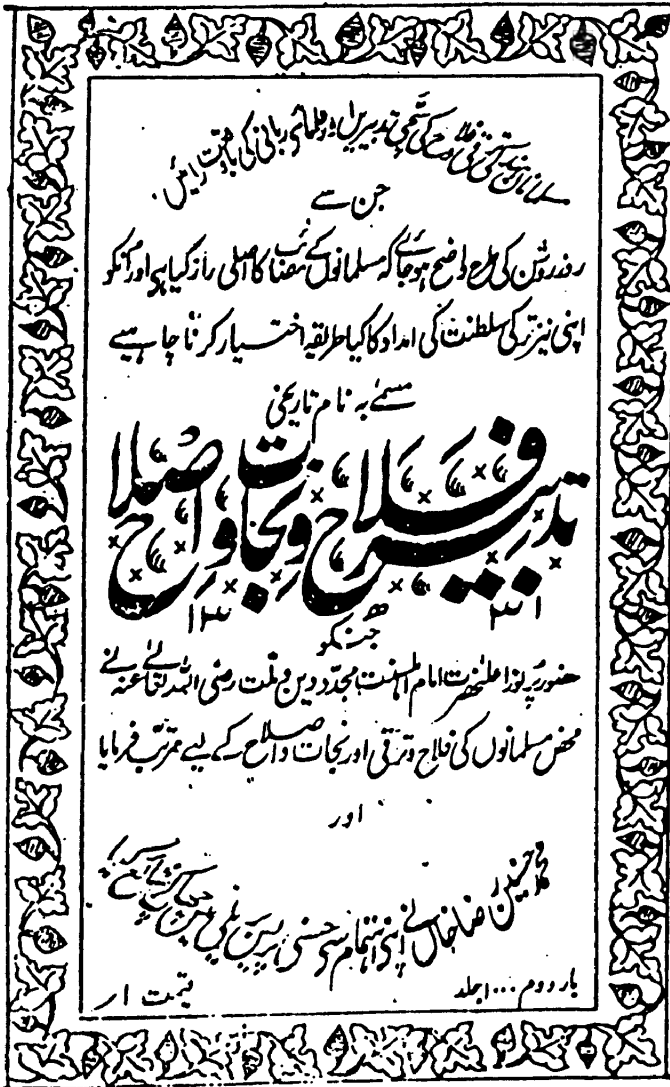 مسلمانان ہند کی ترقی فلاح کی سچی تدبیریں اور علمائے ربانی کی با وقعت رائیں
جن سے
روز روشن کی طرح واضح ہو جائے کہ مسلمانوں کے مصائب کا اصلی راز کیا ہے اور انکو
اپنی نیز ترکی سلطنت کی امداد کا کیا طریقہ اختیار کرنا چاہیے
مسمے بہ نام تاریخی
تدبیر فلاح و نجات و اصلاح
۱۳۳۱ ھ
جنکو
حضور پرنور اعلیٰحضرت امام اہلسنت مجدد دین و ملت رضی اللہ تعالےٰ عنہ نے
محض مسلمانوں کی فلاح و ترقی اور نجات و اصلاح کے لیے مرتب فرمایا
اور
محمد حسنین رضا خاں نے اپنے اہتمام سے حسنی پریس بریلی میں چھاپ کر شائع کیا
بار دوم ۱۰۰۰ جلد
قیمت ۱ر